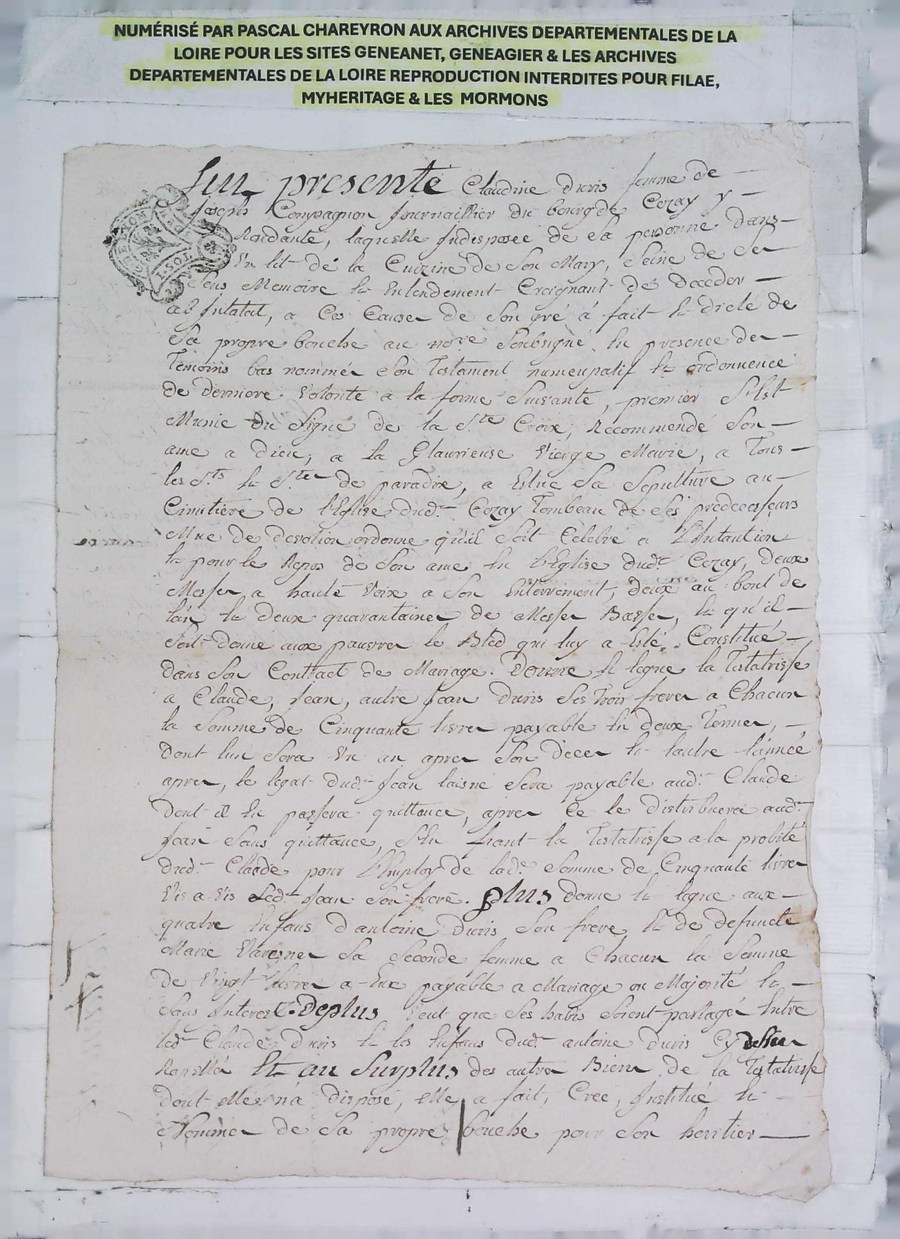 NUMÉRISÉ PAR PASCAL CHAREYRON AUX ARCHIVES DEPARTEMENTALES DE LA
LOIRE POUR LES SITES GENEANET, GENEAGIER & LES ARCHIVES
DEPARTEMENTALES DE LA LOIRE REPRODUCTION INTERDITES POUR FILAE,
MYHERITAGE & LES MORMONS
fut presente Claudine Duris femme de
Joseph Compagnon Journaillier du bourg de Cezay y
Residante, laquelle Indisposée de sa personne dans
un lit de la Cuizine de son Mary, seine de ses
sens Memoire et Entendement Creignant de deceder
ab Intatat, a Ces Causes de son gré à fait et dicté de
sa propre bouche au no.re soubsigné, En presence des
Temoins bas nommés son Testament numcupatif et ordonnence
de derniere volonté a la forme suivante, premier s'est
Munie du signe de la s.te Croix, Recommendé son
ame a dieu, a la Glaurieuse vierge Marie, a Tous
les s.ts et s.tes de paradis, a Eslue sa sepulture au
Cimitière de l'Eglise dud.t Cezay Tombeau de ses predecesseurs
Mue de devotion ordonne qu'il soit Celebré a l'Intantion
et pour le Repos de son ame En l'Eglise dud.t Cezay, deux
Messes a haute voix a son Enterrement, deux au bout de
l'an et deux quarantaines de Messes Basses, et qu'il
soit donné aux pauvres le Bled qui luy a Esté Constitué
dans son Contract de Mariage. Donne et legue la Testatrisse
a Claude, Jean, autre Jean Duris ses trois freres a Chacun
la somme de Cinquante livres payable En deux Termes,
dont l'un sera un an apres son deces et l'autre l'année
apres, le legat dud.t Jean laisné sera payable aud.t Claude
dont il En passera quittance, apres Ce le distribuera aud.t
Jean sans quittance, s'En fiant la Testatrisse a la probité
dud.t Claude pour l'Employ de lad.e somme de Cinquante livres
vis a vis led.t Jean son frere. plus donne et legue aux
quatre Enfans d'antoine Duris son frere et de defuncte
Marie sa seconde femme a Chacun la somme
de vingt livres a Eux payable a Mariage ou Majorité et
sans Interest. Deplus veut que ses habis soient partagé Entre
led.t Claude Duris et les Enfans dud.t antoine Duris
Et au surplus des autres Biens de la Testatrisse
dont elle n'a disposé, elle a fait, Creé, Institué et
Nommé de sa propre bouche pour son heritier